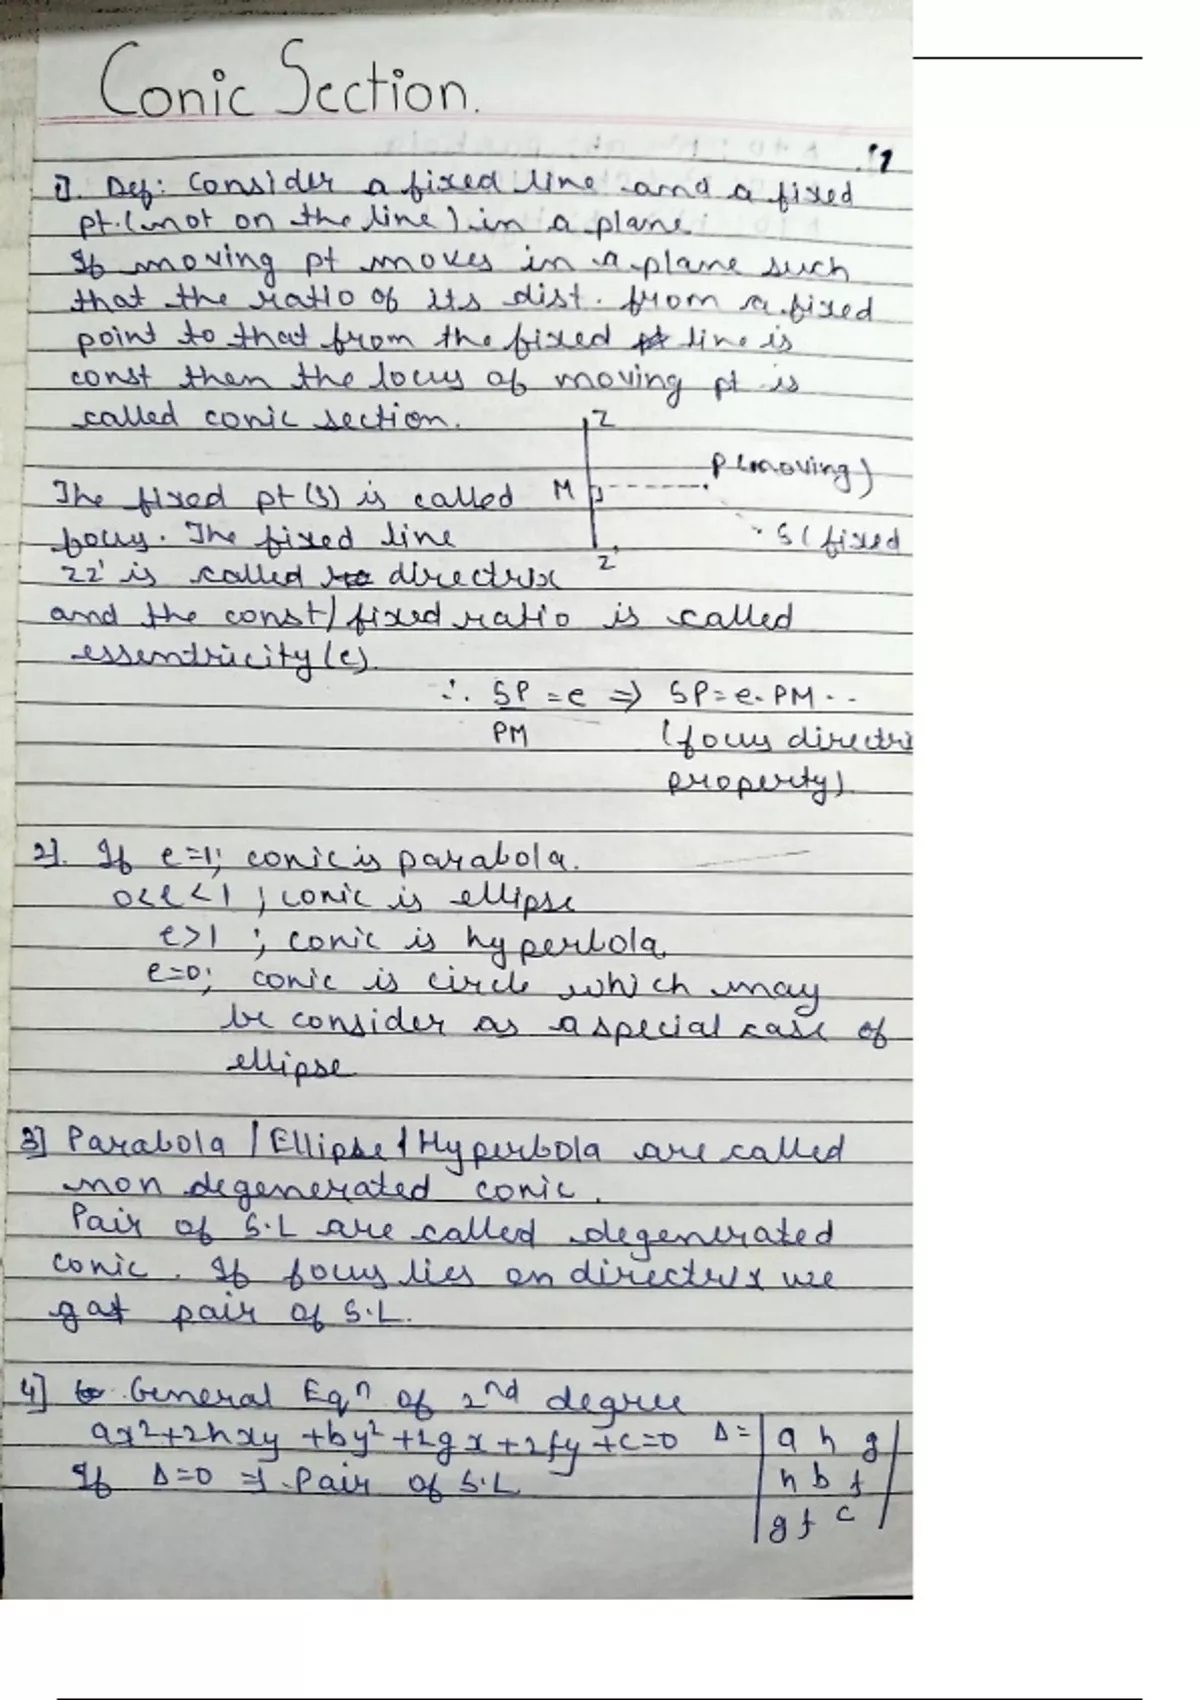 Conic Section.
1]. Def: Consider a fixed line and a fixed
pt. (not on the line) in a plane.
If moving pt moves in a plane such
that the ratio of its dist. from a fixed
point to that from the fixed line is
const then the locus of moving pt is
called conic section.
Z
P (moving)
M
The fixed pt (S) is called
S (fixed
focus. The fixed line
Z'
ZZ' is called directrix
and the const/fixed ratio is called
essentricity (e).
∴ SP/PM = e ⇒ SP = e. PM ..
(focus directri
property).
2]. If e=1; conic is parabola.
0<e<1 ; conic is ellipse
e>1 ; conic is hyperbola
e=0; conic is circle which may
be consider as a special case of
ellipse
3] Parabola / Ellipse / Hyperbola are called
non degenerated conic.
Pair of S.L are called degenerated
conic. If focus lies on directrix we
gat pair of S.L.
4] General Eqⁿ of 2nd degree
ax²+2hxy +by²+2gx+2fy+c=0 Δ= | a h g |
If Δ=0 ⇒ Pair of S.L | h b f |
| g f c |